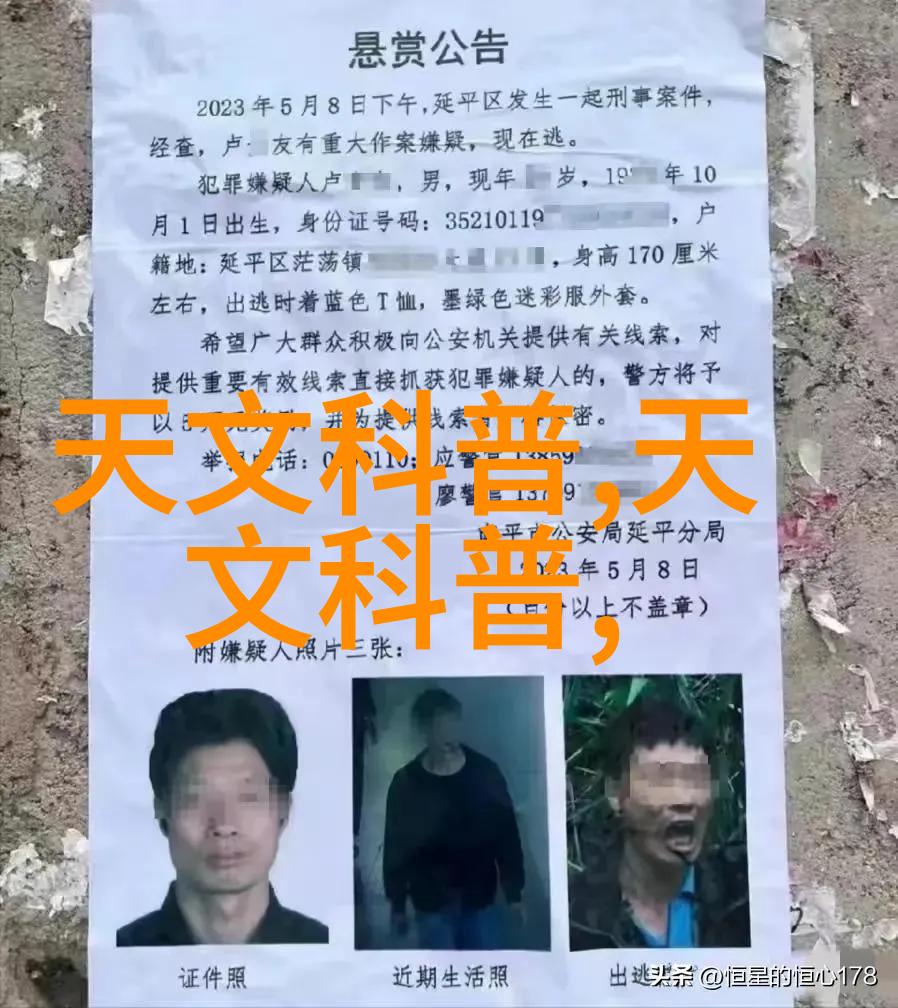 悬赏公告
2023年5月8日下午,延平区发生一起刑事案件,
经查,卢 友有重大作案嫌疑,现在逃。
犯罪嫌疑人卢 ,男,现年 岁,19 年10
月1日出生,身份证号码:35210119 ,户
籍地:延平区茫荡镇 ,身高170厘米
左右,出逃时着蓝色T恤,墨绿色迷彩服外套。
希望广大群众积极向公安机关提供有关线索,对
提供重要有效线索直接抓获犯罪嫌疑人的,警方将予
以 密。
天文科普,天
文科普,
举 电话:0 0110;应警官13859
廖警官137 9
平市公安局延平分局
2023年5月8日
以上不盖章)
附嫌疑人照片三张:
证件照
近期生活照
出逃
头条 @恒星的恒心178